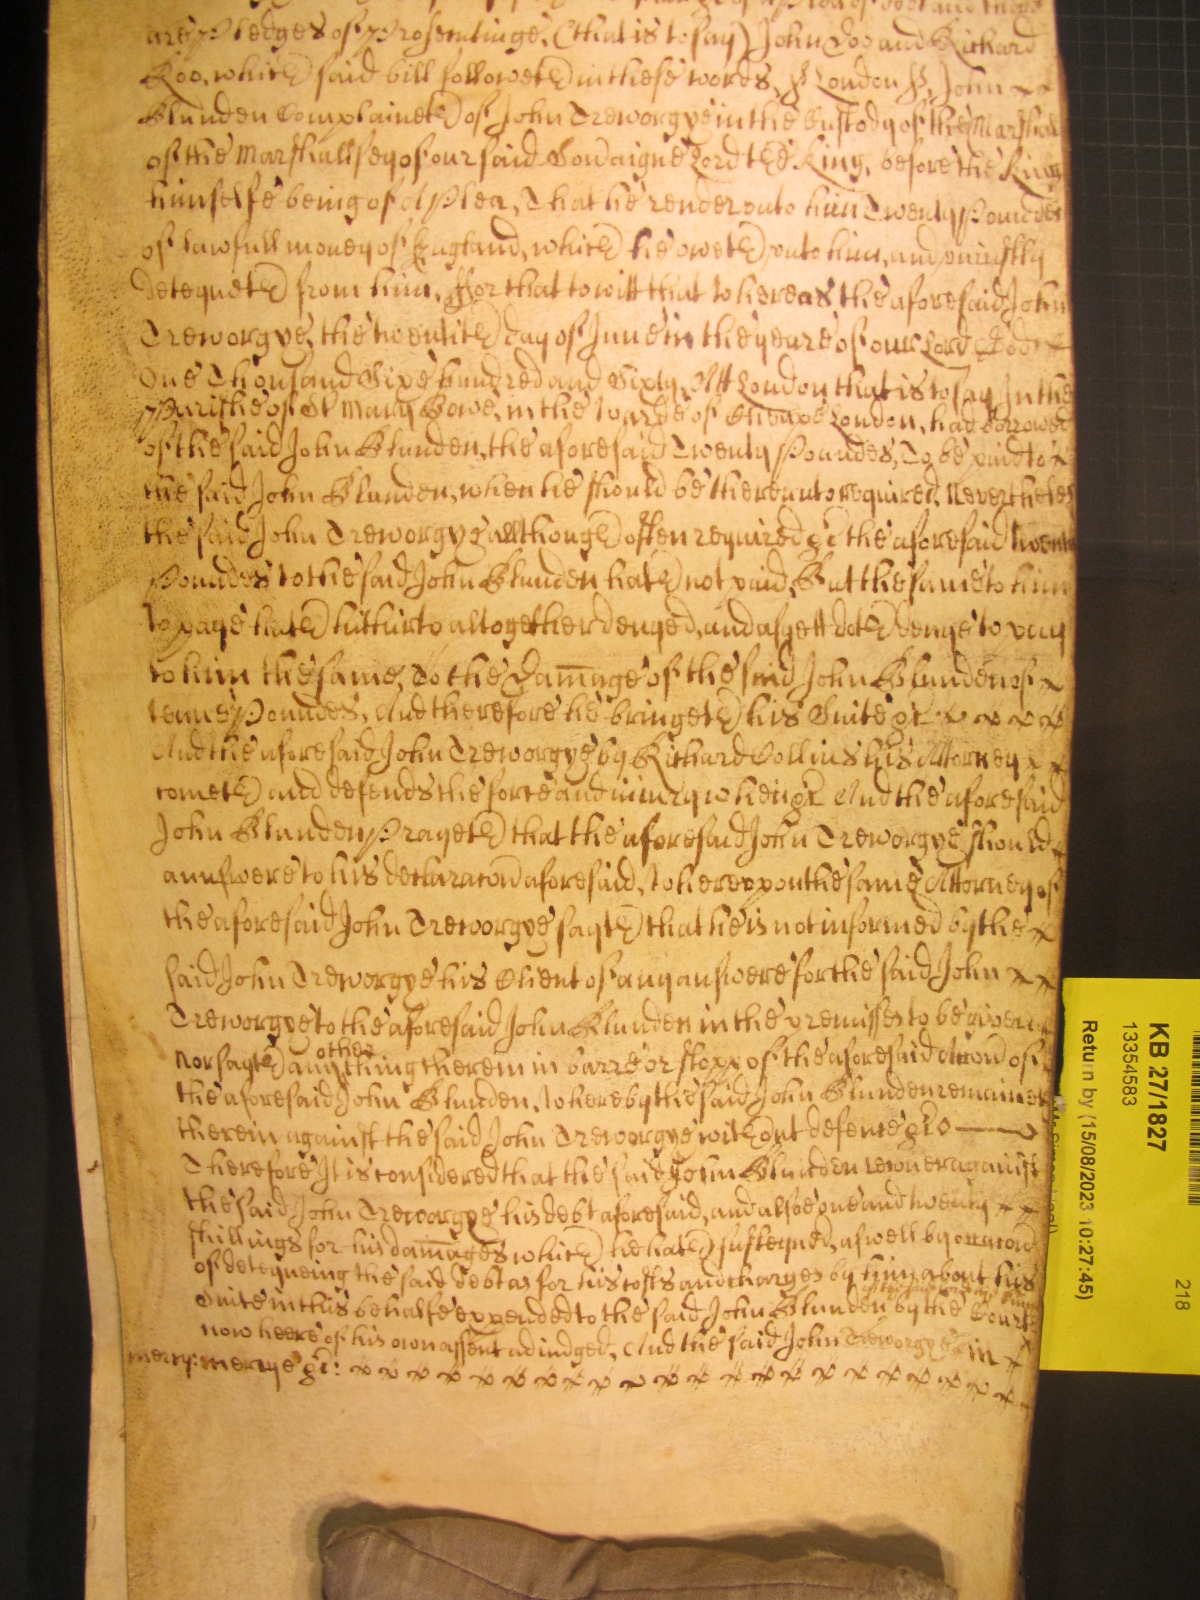 are Pledges of Prosecutinge, (that is to say) John Doo and Richard
Roo, which said bill followeth in these words, ss London ss, John
Blunden Complaineth of John Treworgye in the Custody of the Marshall
of the Marshallsey of our said Soveraigne Lord the King, before the King
himselfe being of A Plea, That he render unto him Twenty Poundes
of lawfull money of England, which he oweth unto him, and uniustly
deteyneth from him, ffor that to witt that whereas the aforesaid John
Treworgye, the twentith day of June in the yeare of our Lord God
One Thousand Sixe hundred and Sixty, Att London that is to say In the
Parishe of St Mary Bowe, in the Warde of Cheape London, had borrowed
of the said John Blunden, the aforesaid Twenty Poundes, To be paid to
the said John Blunden, when he should be thereunto required, Neverthelesse
the said John Treworgye allthough often required &c the aforesaid twenty
Poundes to the said John Blunden hath not paid, But the same to him
to paye hath hitherto altogether denyed, and as yett doth denye to pay
to him the same, To the Damage of the said John Blunden of
tenne Poundes, And therefore he bringeth his Suite &c
And the aforesaid John Treworgye by Richard Collins his Attorney
cometh and defends the force and iniury when &c And the aforesaid
John Blunden Prayeth that the aforesaid John Treworgye should
aunswere to his declaracon aforesaid, Whereuppon the same Attorney of
the aforesaid John Treworgye sayth that he is not informed by the
said John Treworgye his Client of any answere for the said John
Treworgye to the aforesaid John Blunden in the premisses to be given
nor sayth any other thing therein in barre or stopp of the aforesaid accon of
the aforesaid John Blunden, Whereby the said John Blunden remaineth
therein against the said John Treworgye without defence &c
Therefore It is considered that the said John Blunden recover against
the said John Treworgye his debt aforesaid, and alsoe one and twenty
shillings for his damages which he hath susteyned, aswell by occacon
of deteyneing the said debt as for his costs and charges by him about his
Suite in this behalfe expended to the said John Blunden by the Court
now heere of his own assent adiudged, And the said John Treworgye in
mercy: mercye &c:
KB 27/1827
13354583
Return by (15/08/2023 10:27:45)
218